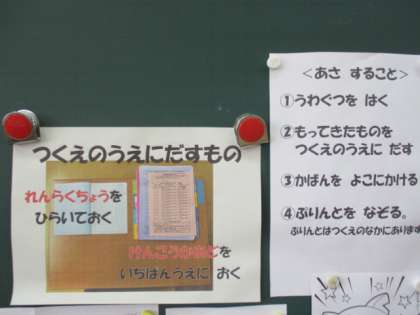 つくえのうえにだすもの
れんらくちょうを
ひらいておく
けんこうかんさつを
いちばんうえに おく
＜あさ すること＞
①うわぐつを はく
②もってきたものを
つくえのうえに だす
③かばんを よこにかける
④ぷりんとを なぞる。
ぷりんとはつくえのなかにあります